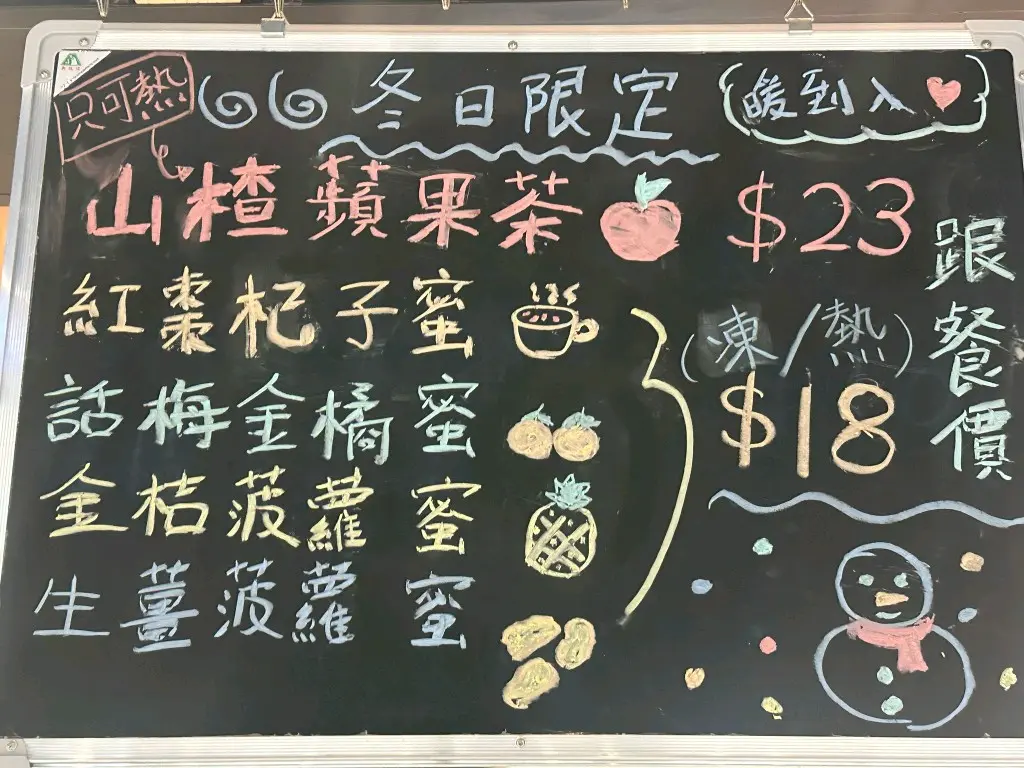 只可熱
冬日限定
(暖到入♥)
山楂蘋果茶 $23
紅棗杞子蜜
(凍/熱)
$18
跟餐價
話梅金橘蜜
金桔菠蘿蜜
生薑菠蘿蜜